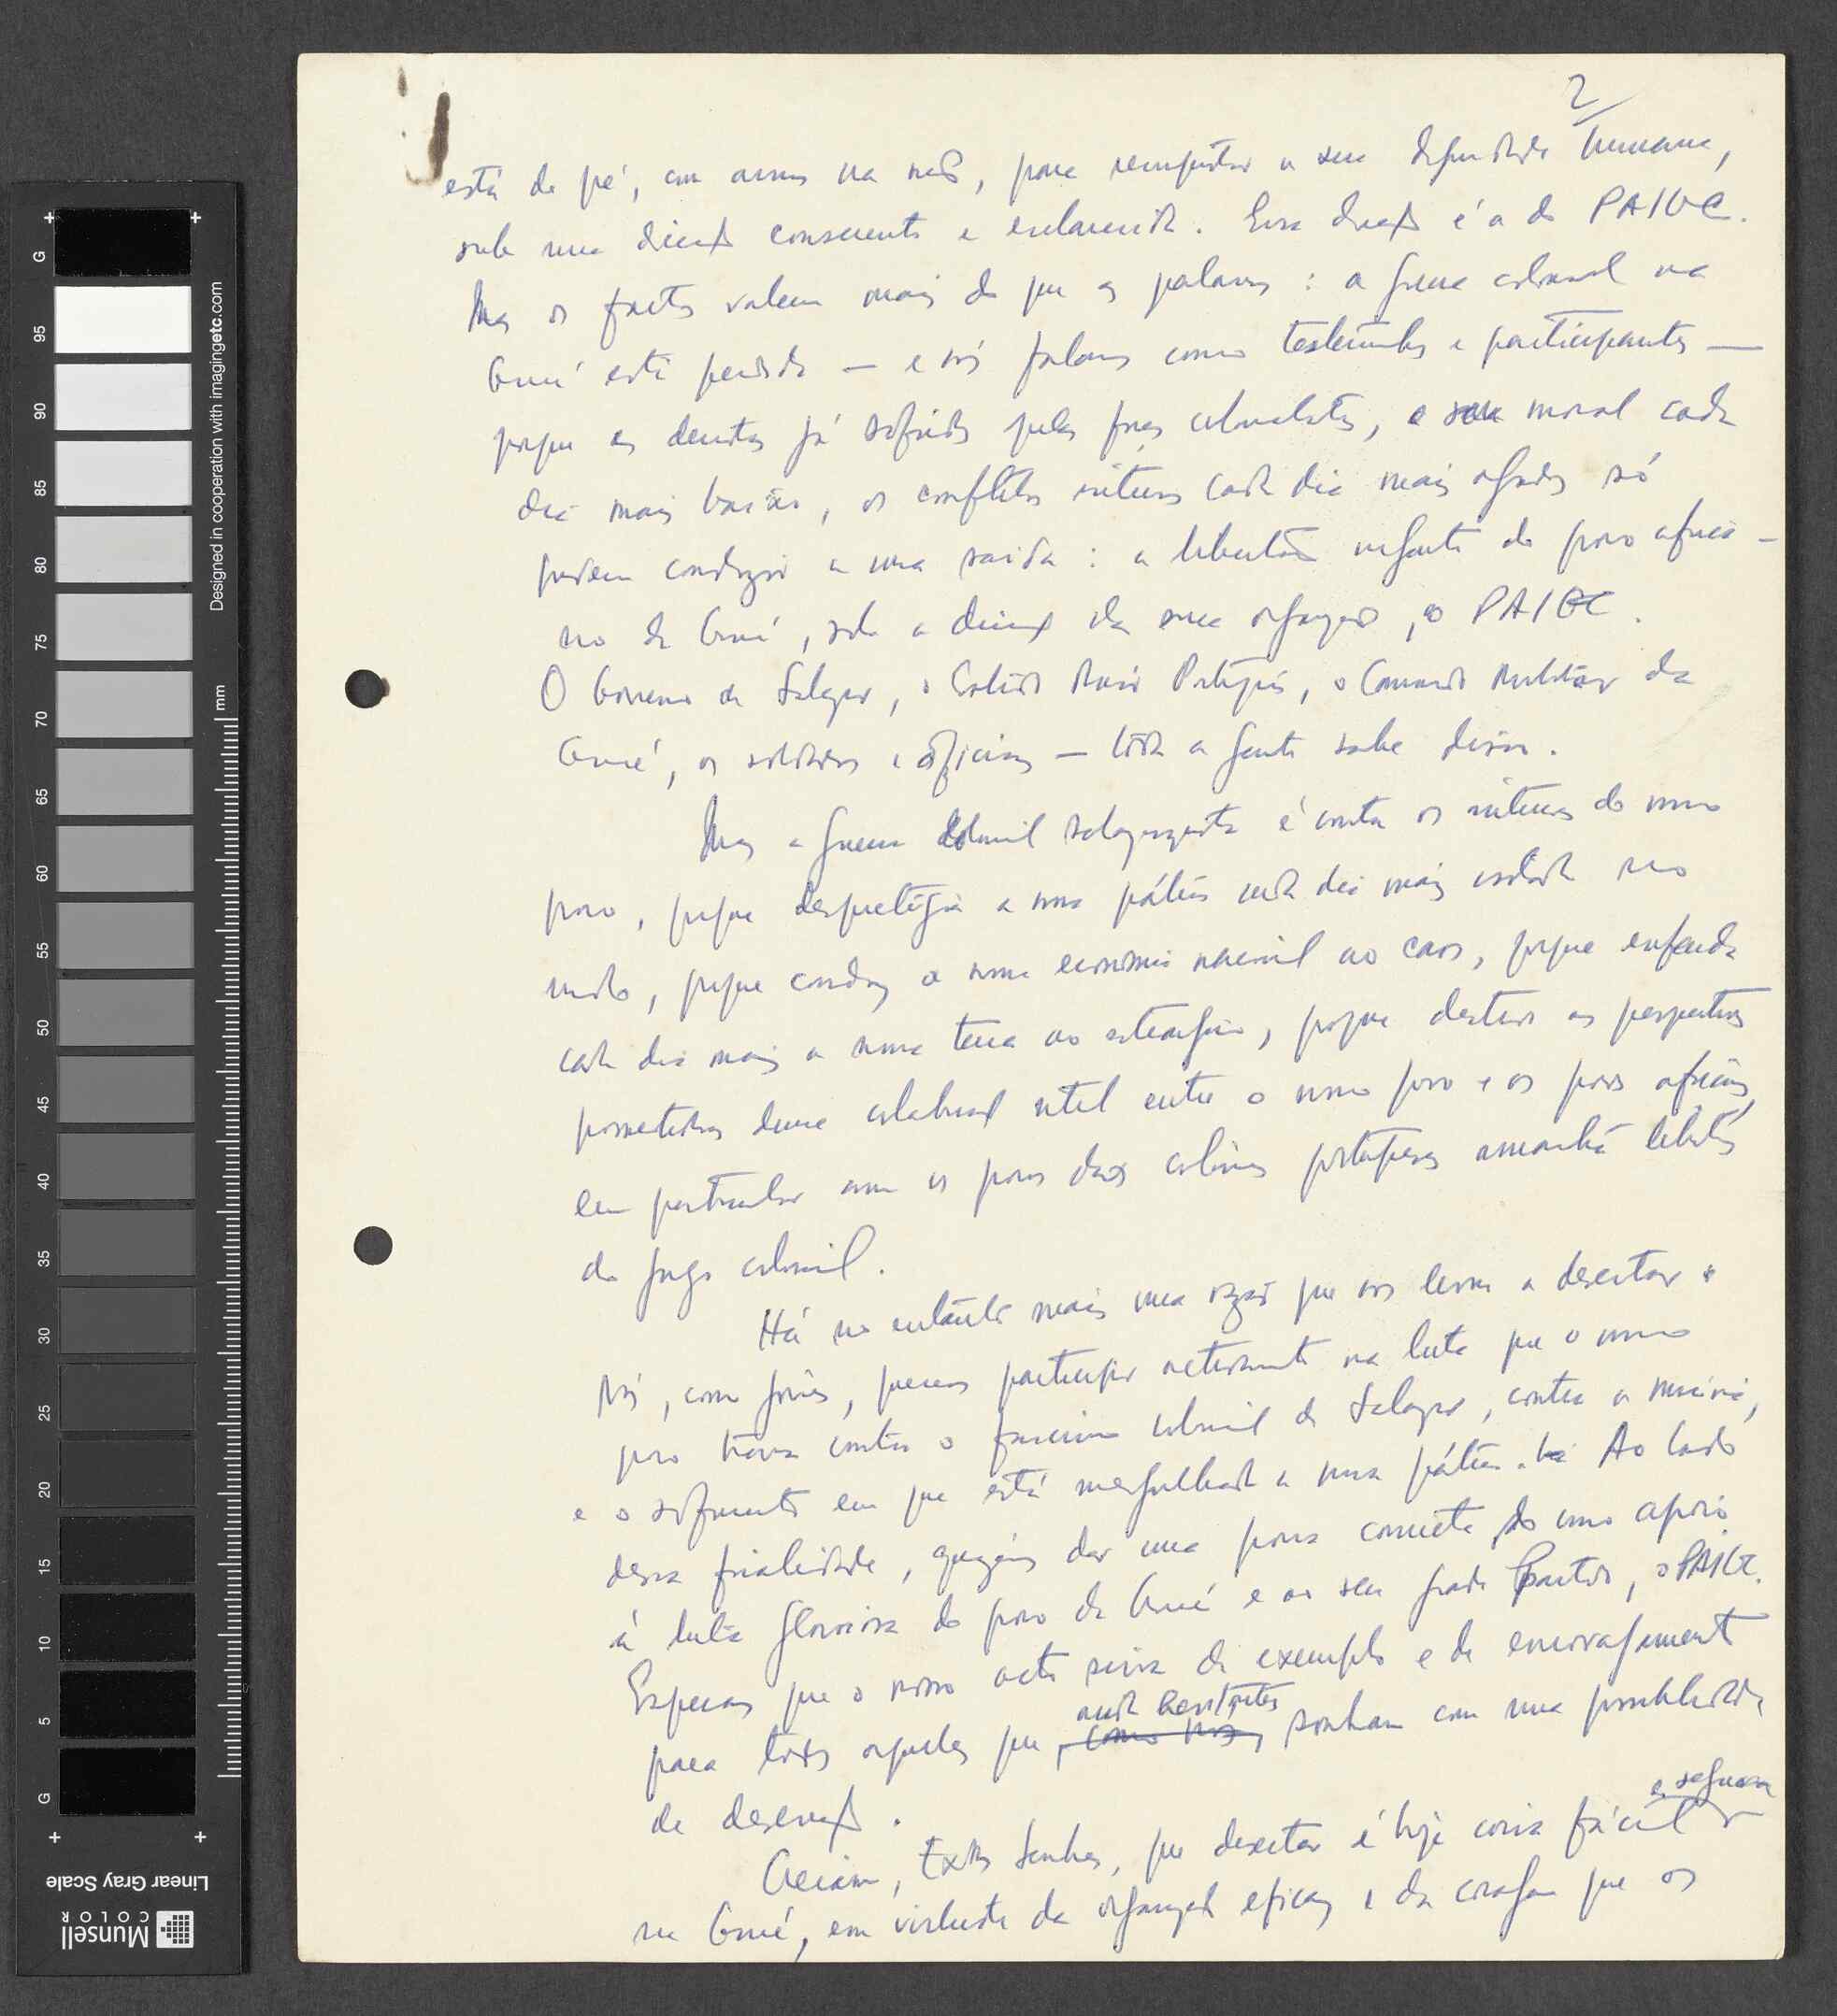 2
está de pé, com armas na mão, para reconquistar a sua dignidade humana,
sob uma direcção consciente e esclarecida. Essa direcção é a do PAIGC.
Mas os factos valem mais do que as palavras: a guerra colonial na
Guiné está perdida — e nós falamos como testemunhas e participantes —
porque as derrotas já sofridas pelas forças colonialistas, o seu moral cada
dia mais baixo, os conflitos internos cada dia mais agudos só
podem conduzir a uma saída: a libertação urgente do povo africa-
no da Guiné, sob a direcção da sua organização, o PAIGC.
O Governo de Salazar, o Estado Maior Português, o Comando Militar da
Guiné, os soldados e oficiais — toda a gente sabe disso.
Mas a guerra colonial salazarista é contra os interesses do nosso
povo, porque desprestigia a nossa pátria cada dia mais isolada no
mundo, porque conduz a nossa economia nacional ao caos, porque enfeuda
cada dia mais a nossa terra ao estrangeiro, porque destrói as perspectivas
prometedoras duma colaboração util entre o nosso povo e os povos africanos,
em particular com os povos das colónias portuguesas amanhã libertos
do jugo colonial.
Há no entanto mais uma razão que nos levou a desertar:
Nós, como jovens, queremos participar activamente na luta que o nosso
povo trava contra o fascismo colonial de Salazar, contra a miséria,
e o sofrimento em que está mergulhada a nossa pátria. Ao lado
dessa finalidade, quizémos dar uma prova concreta do nosso apoio
à luta gloriosa do povo da Guiné e ao seu grande Partido, o PAIGC.
Esperamos que o nosso acto sirva de exemplo e de encorajamento
ainda hesitantes
para todos aqueles que, como nós, sonham com uma possibilidade
de deserção.
e segura
Creiam, Exmos Senhores, que desertar é hoje coisa fácil
na Guiné, em virtude da organização eficaz e da coragem que os